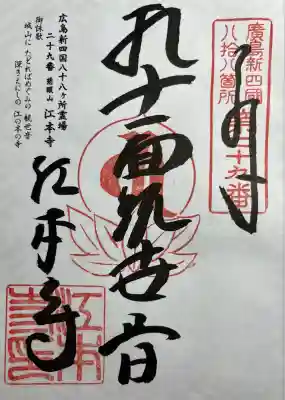 廣島新四國
八拾八箇所
第二十九番
十一面観世音
広島新四国八十八ヶ所霊場
二十九番 慈願山 江本寺
御詠歌
城山に たどればめぐみの 観世音
深きえにしの 江の本の寺
江本寺